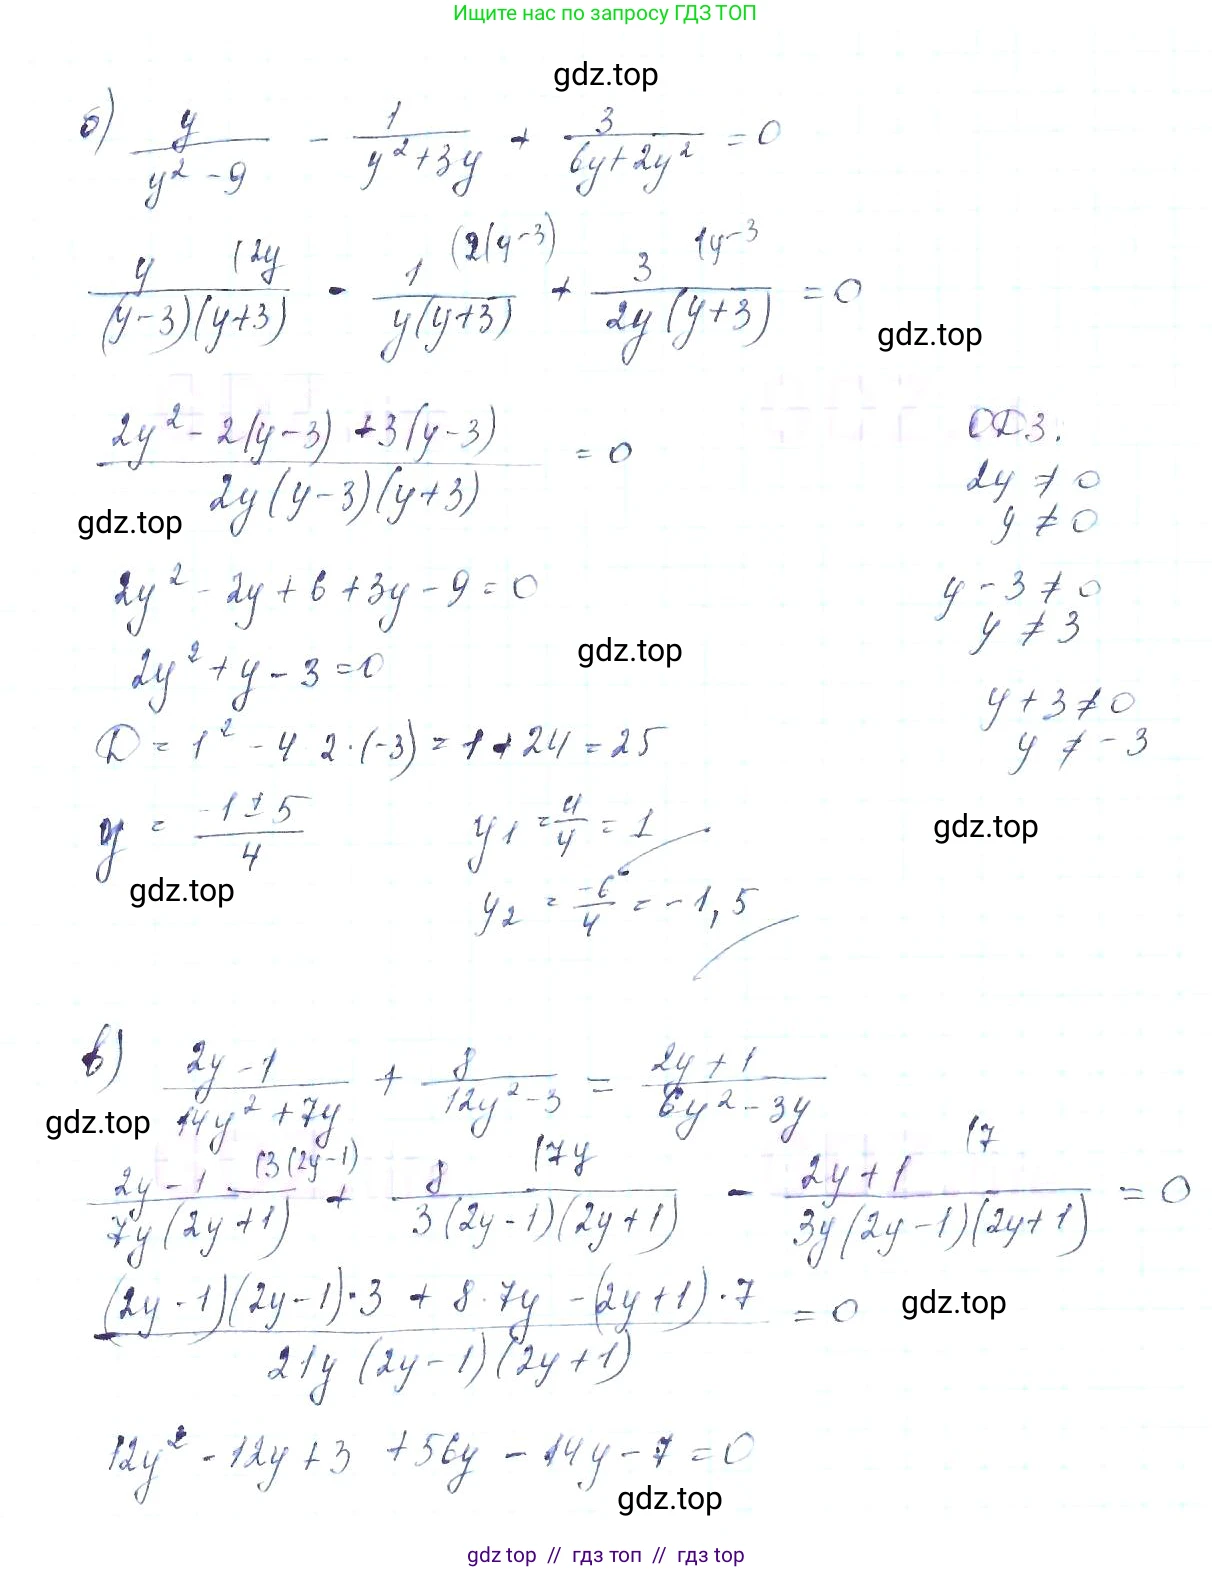 Ищите нас по запросу ГДЗ ТОП
gdz.top
б) y/(y² - 9) - 1/(y² + 3y) + 3/(6y + 2y²) = 0
y/((y-3)(y+3)) (2y - 1/(y(y+3)) (2(y-3) + 3/(2y(y+3)) (y-3 = 0
gdz.top
(2y² - 2(y-3) + 3(y-3))/(2y(y-3)(y+3)) = 0
ОДЗ:
2y ≠ 0
y ≠ 0
gdz.top
2y² - 2y + 6 + 3y - 9 = 0
y - 3 ≠ 0
y ≠ 3
gdz.top
2y² + y - 3 = 0
y + 3 ≠ 0
y ≠ -3
D = 1² - 4 2·(-3) = 1 + 24 = 25
y = (-1 ± 5)/4
y1 = 4/4 = 1
gdz.top
gdz.top
y2 = -6/4 = -1,5
в) (2y - 1)/(14y² + 7y) + 8/(12y² - 3) = (2y + 1)/(6y² - 3y)
gdz.top
(2y - 1)/(7y(2y+1)) (3(2y-1) + 8/(3(2y-1)(2y+1)) (7y - (2y+1)/(3y(2y-1)(2y+1)) (7 = 0
((2y-1)(2y-1)·3 + 8·7y - (2y+1)·7)/(21y(2y-1)(2y+1)) = 0
gdz.top
12y² - 12y + 3 + 56y - 14y - 7 = 0
gdz.top
gdz top // гдз топ // гдз top